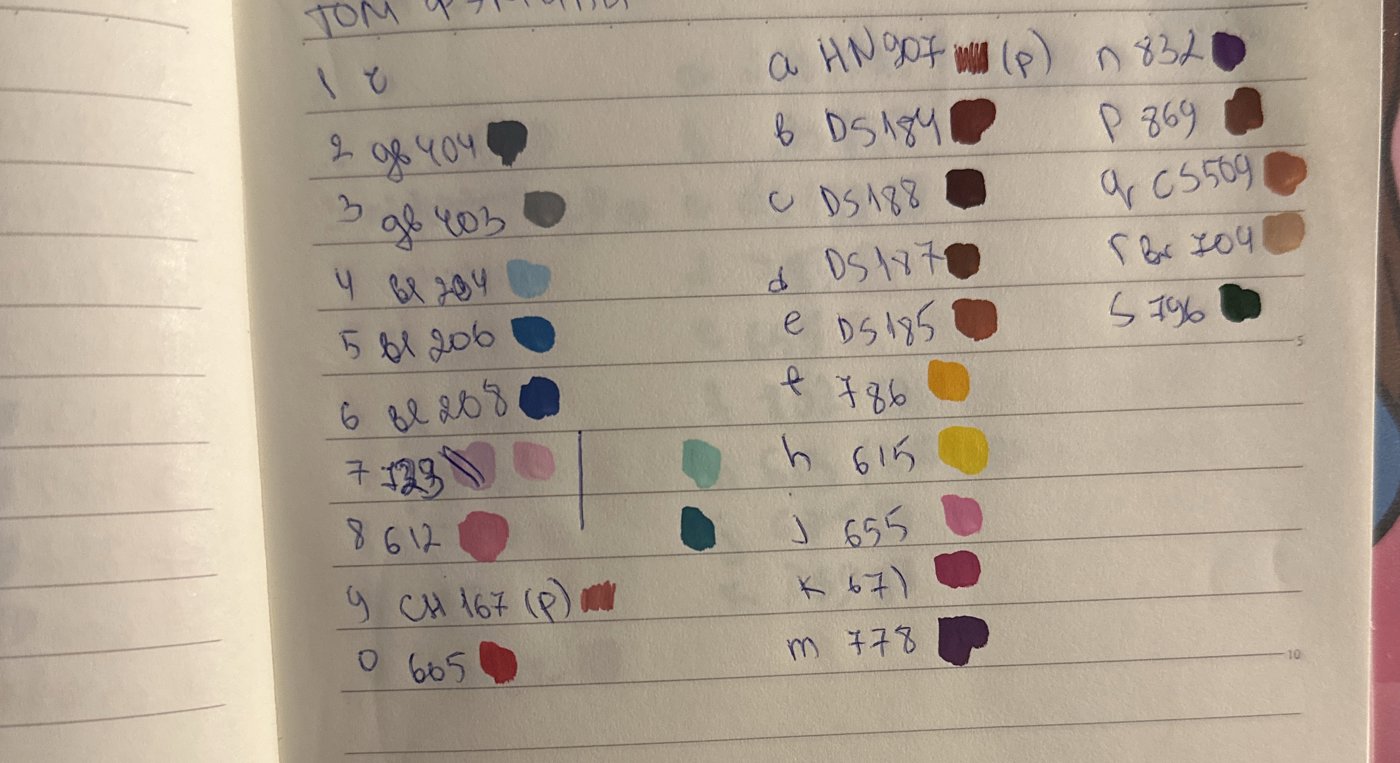 ТОМ
1
2 gb 404
3 gb 403
4 Bl 204
5 Bl 206
6 Bl 208
7
8 612
9 CH 167 (p)
0 605
a HN 907 (p)
b DS 184
c DS 188
d DS 187
e DS 185
f 786
h 615
j 655
k 671
m 778
n 832
p 869
q CS 509
r Br 704
s 796
5
10